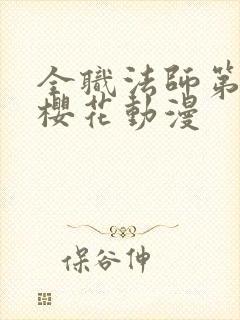 全職法師第
櫻花動漫
保谷伸